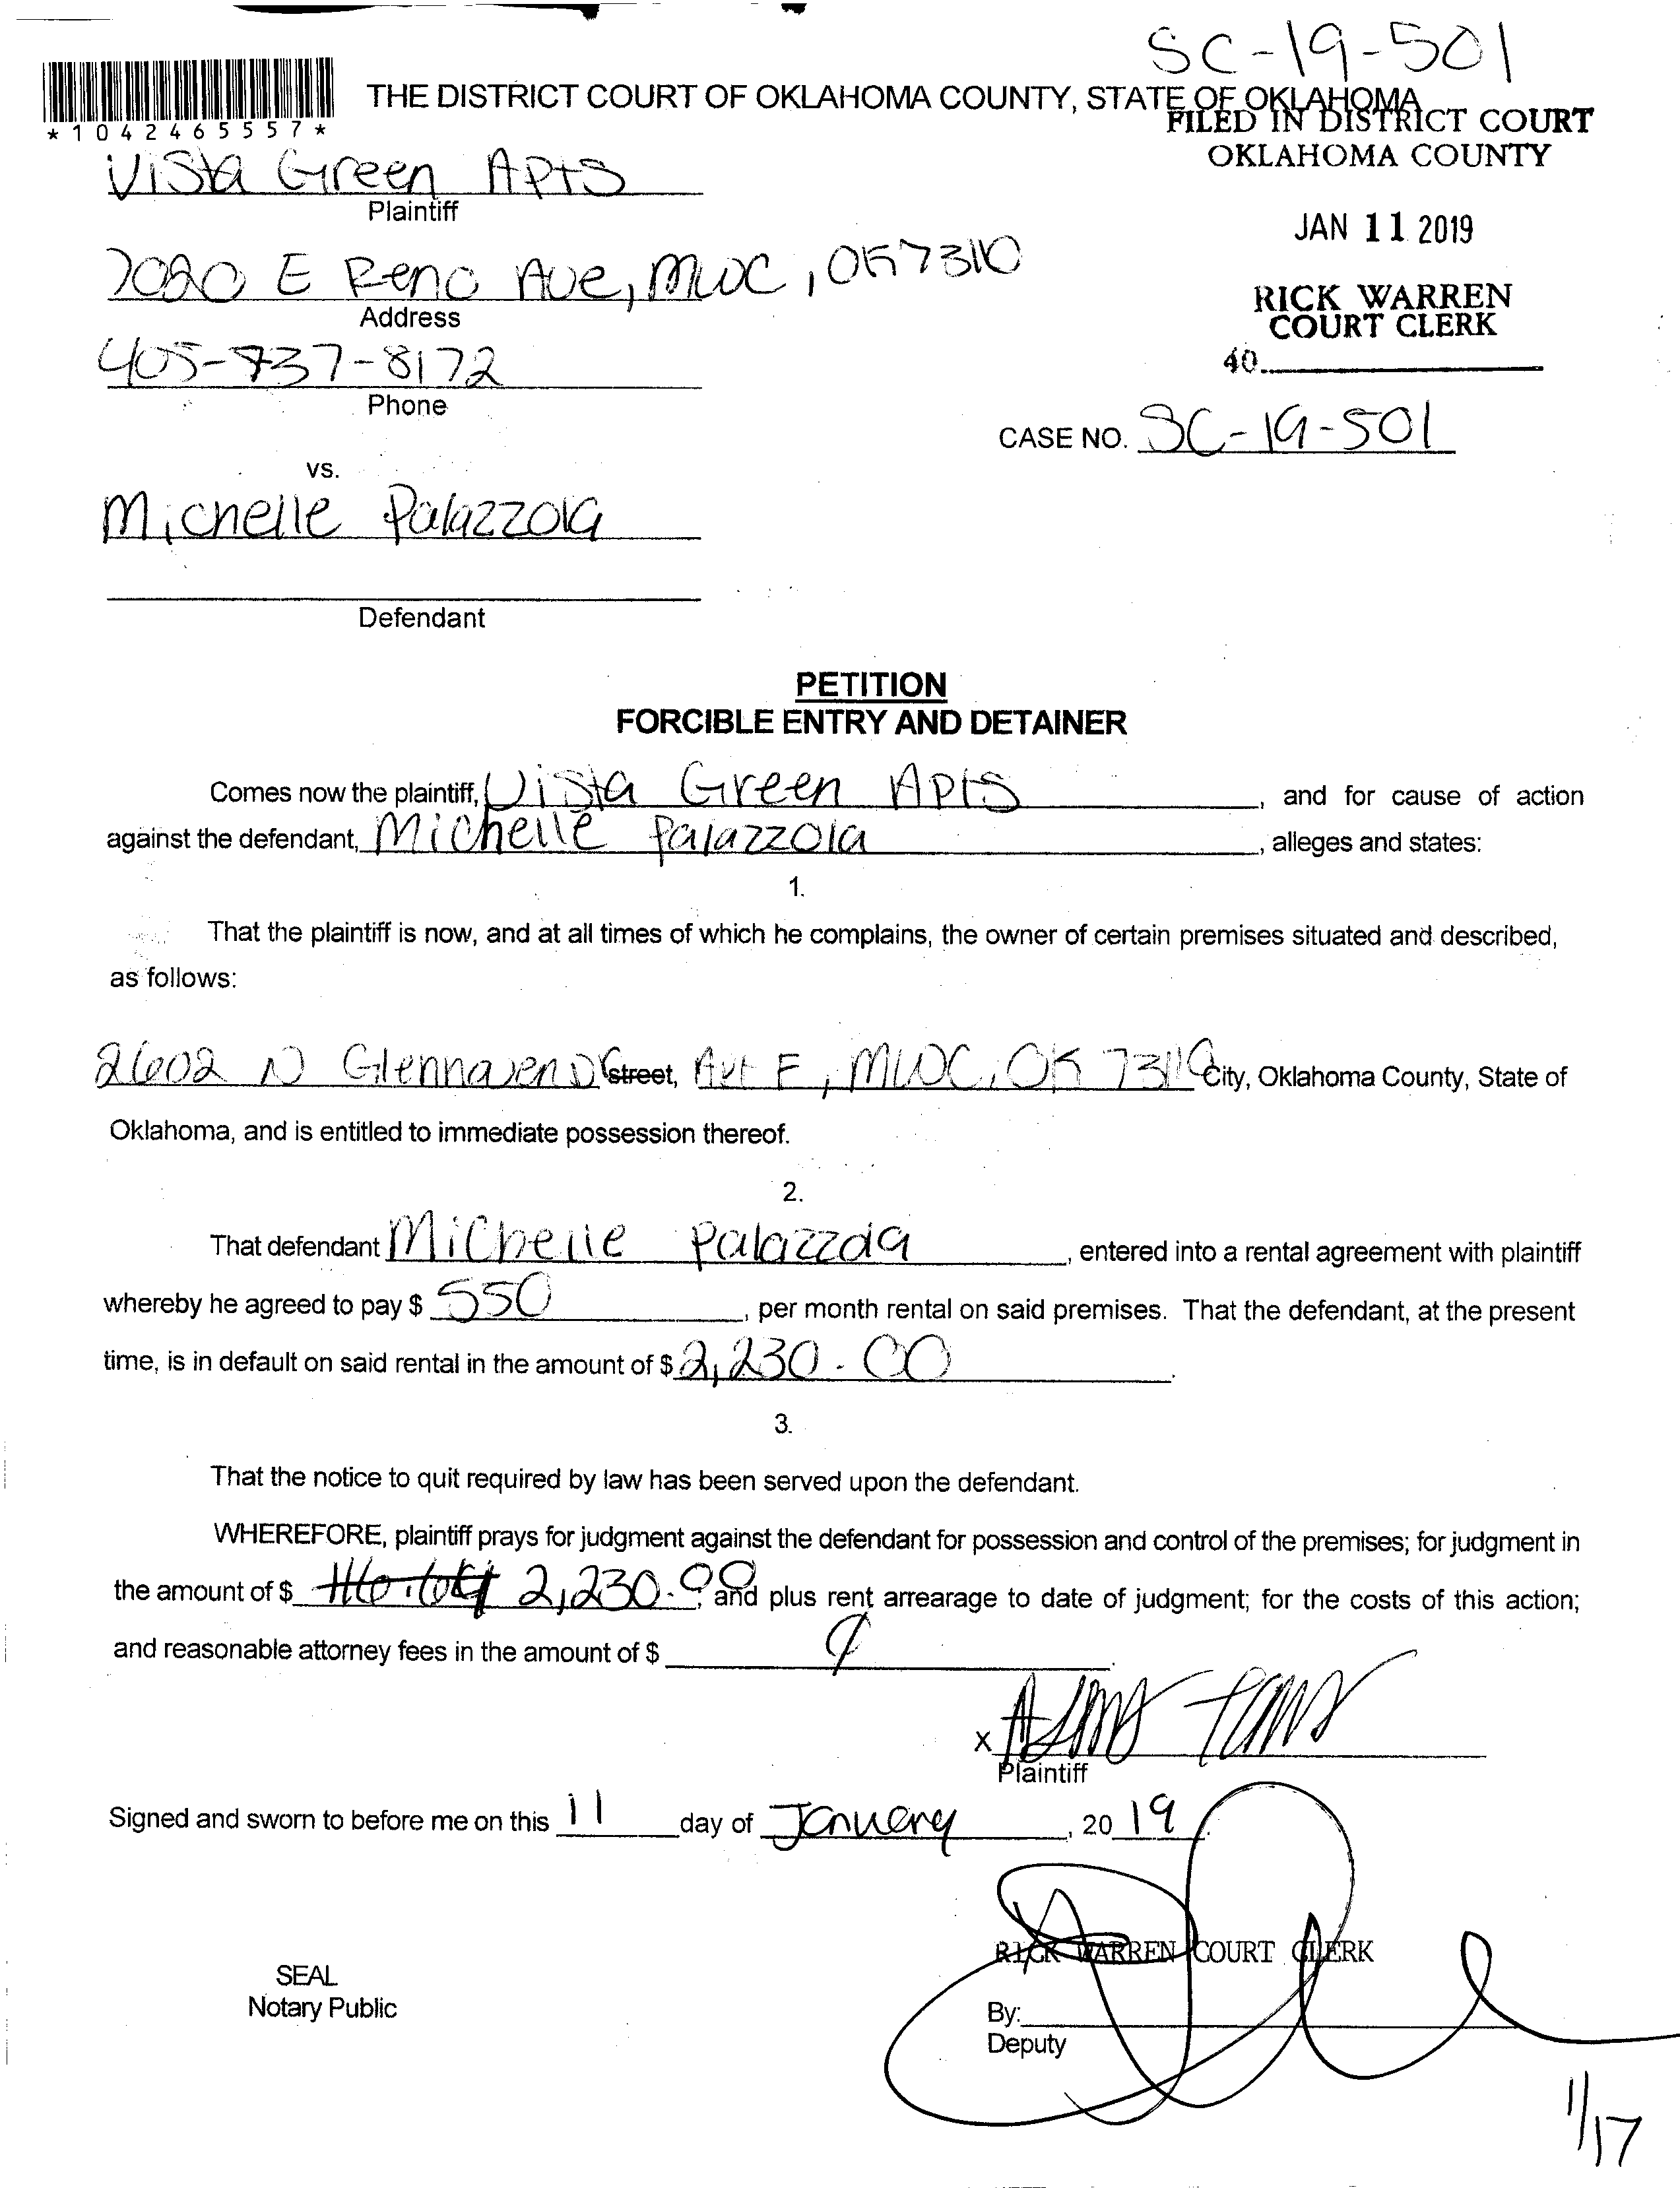 SC-19-501
THE DISTRICT COURT OF OKLAHOMA COUNTY, STATE OF OKLAHOMA
*1042465557*
FILED IN DISTRICT COURT
OKLAHOMA COUNTY
Vista Green Apts
Plaintiff
JAN 11 2019
7020 E Reno Ave, MWC, OK 73110
Address
RICK WARREN
COURT CLERK
405-737-8172
40
Phone
CASE NO. SC-19-501
vs.
Michelle Palazzola
Defendant
PETITION
FORCIBLE ENTRY AND DETAINER
Comes now the plaintiff, Vista Green Apts, and for cause of action
against the defendant, Michelle Palazzola, alleges and states:
1.
That the plaintiff is now, and at all times of which he complains, the owner of certain premises situated and described,
as follows:
2602 N Glenhaven Dr Street, Apt F, MWC, OK 73110 City, Oklahoma County, State of
Oklahoma, and is entitled to immediate possession thereof.
2.
That defendant Michelle Palazzola, entered into a rental agreement with plaintiff
whereby he agreed to pay $ 550, per month rental on said premises. That the defendant, at the present
time, is in default on said rental in the amount of $ 2,230.00.
3.
That the notice to quit required by law has been served upon the defendant.
WHEREFORE, plaintiff prays for judgment against the defendant for possession and control of the premises; for judgment in
the amount of $ 2,230.00, and plus rent arrearage to date of judgment; for the costs of this action;
and reasonable attorney fees in the amount of $
X
Plaintiff
Signed and sworn to before me on this 11 day of January, 20 19.
RICK WARREN COURT CLERK
SEAL
Notary Public
By:
Deputy
1/17